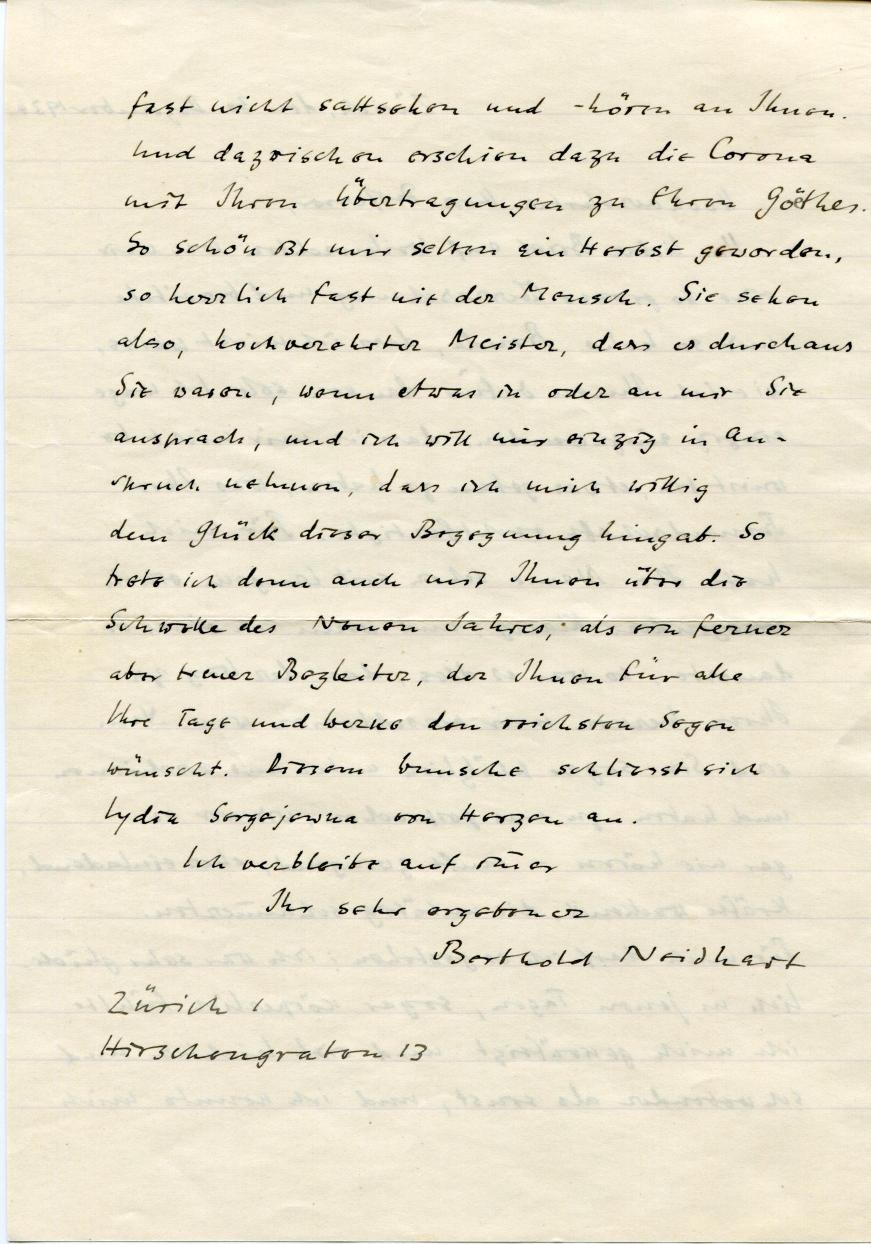 fast nicht sattsehen und -hören an Ihnen.
Und dazwischen erschien dazu die Corona
mit Ihren Übertragungen zu Ehren Göthes.
So schön ist mir selten ein Herbst geworden,
so herrlich fast nie der Mensch. Sie sehen
also, hochverehrter, Meister, dass es durchaus
Sie waren, wenn etwas in oder an mir Sie
ansprach, und ich will mir einzig in An-
spruch nehmen, dass ich mich willig
dem Glück dieser Begegnung hingab. So
trete ich denn auch mit Ihnen über die
Schwelle des Neuen Jahres, als ein ferner
aber treuer Begleiter, der Ihnen für alle
Ihre Tage und Werke den reichsten Segen
wünscht. Diesem Wunsche schliesst sich
Lydia Sergejewna von Herzen an.
Ich verbleibe auf immer
Ihr sehr ergebener
Berthold Neidhart
Zürich 1
Hirschengraben 13